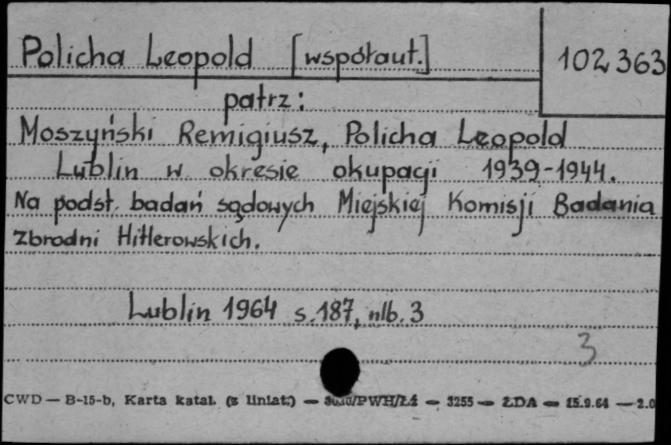 Policha Leopold [współaut.] 102363
patrz:
Moszyński Remigiusz, Policha Leopold
Lublin w okresie okupacji 1939-1944.
Na podst. badań sądowych Miejskiej Komisji Badania
Zbrodni Hitlerowskich.
Lublin 1964 s.187, nlb. 3
3
CWD — B-15-b, Karta katal. (z liniat.) — /PWH/Ł4 — 3255 — ŁDA — 15.9.64 — 2.0